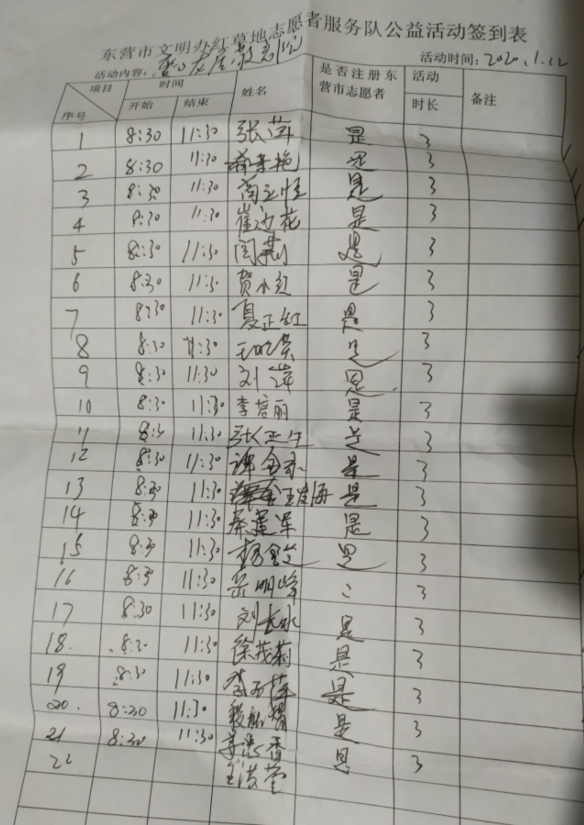 东营市文明办红草地志愿者服务队公益活动签到表
活动内容: 活动时间:2020.1.12
项目 序号 时间 开始 结束 姓名 是否注册东营市志愿者 活动时长 备注
1 8:30 11:30 张萍 是 3
2 8:30 11:30 是 3
3 8:30 11:30 是 3
4 8:30 11:30 崔 花 是 3
5 8:30 11:30 闫 是 3
6 8:30 11:30 贺小红 是 3
7 8:30 11:30 夏正红 是 3
8 8:30 11:30 王 是 3
9 8:30 11:30 刘萍 是 3
10 8:30 11:30 李培丽 是 3
11 8:30 11:30 张 是 3
12 8:30 11:30 谭金 是 3
13 8:30 11:30 王发海 是 3
14 8:30 11:30 秦建军 是 3
15 8:30 11:30 杨金文 是 3
16 8:30 11:30 岳明峰 3
17 8:30 11:30 刘长水 是 3
18. 8:30 11:30 徐茂莉 是 3
19 8:30 11:30 李 萍 是 3
20. 8:30 11:30 是 3
21 8:30 11:30 香 是 3
22 王